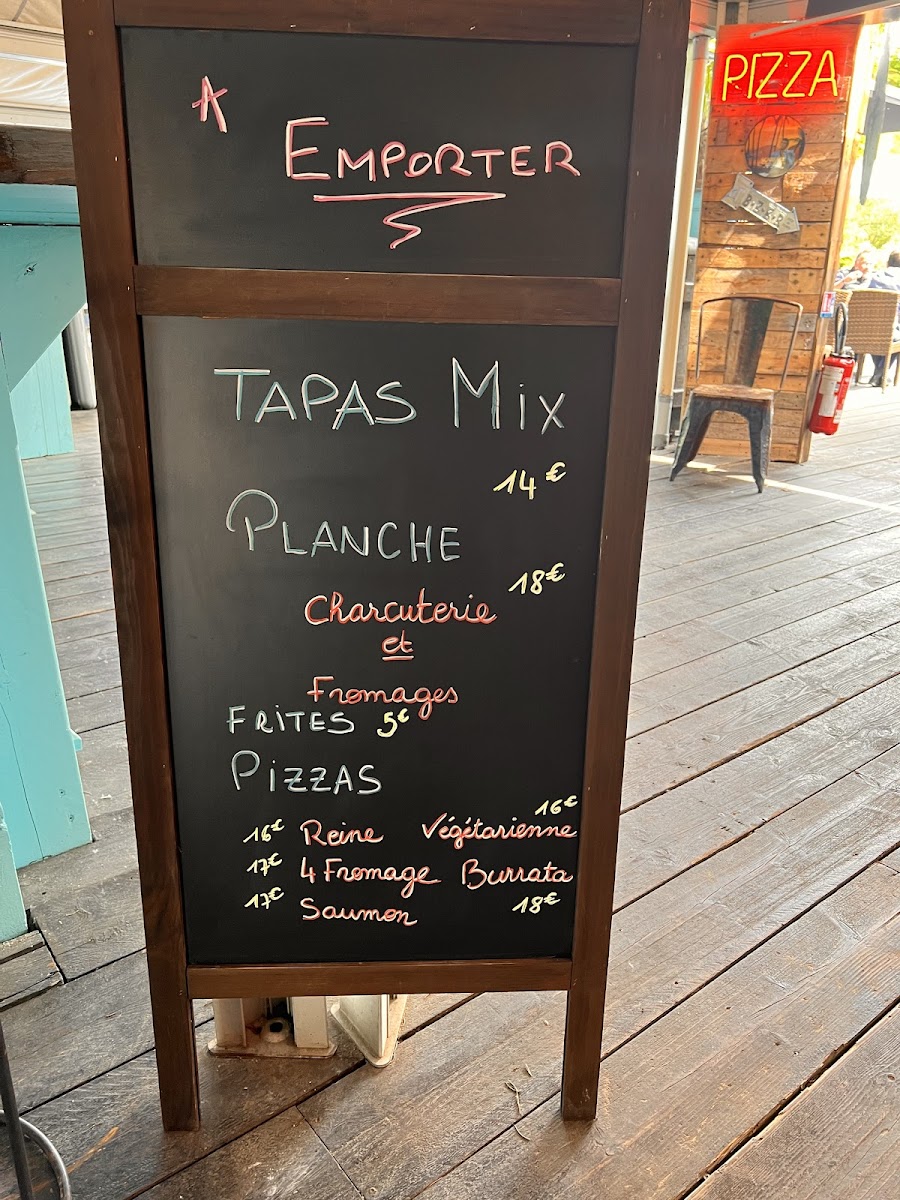 A
EMPORTER
TAPAS MIX
14€
PLANCHE
18€
Charcuterie
et
Fromages
FRITES 5€
PIZZAS
16€ Reine Végétarienne 16€
17€ 4 Fromage Burrata
17€ Saumon 18€
PIZZA